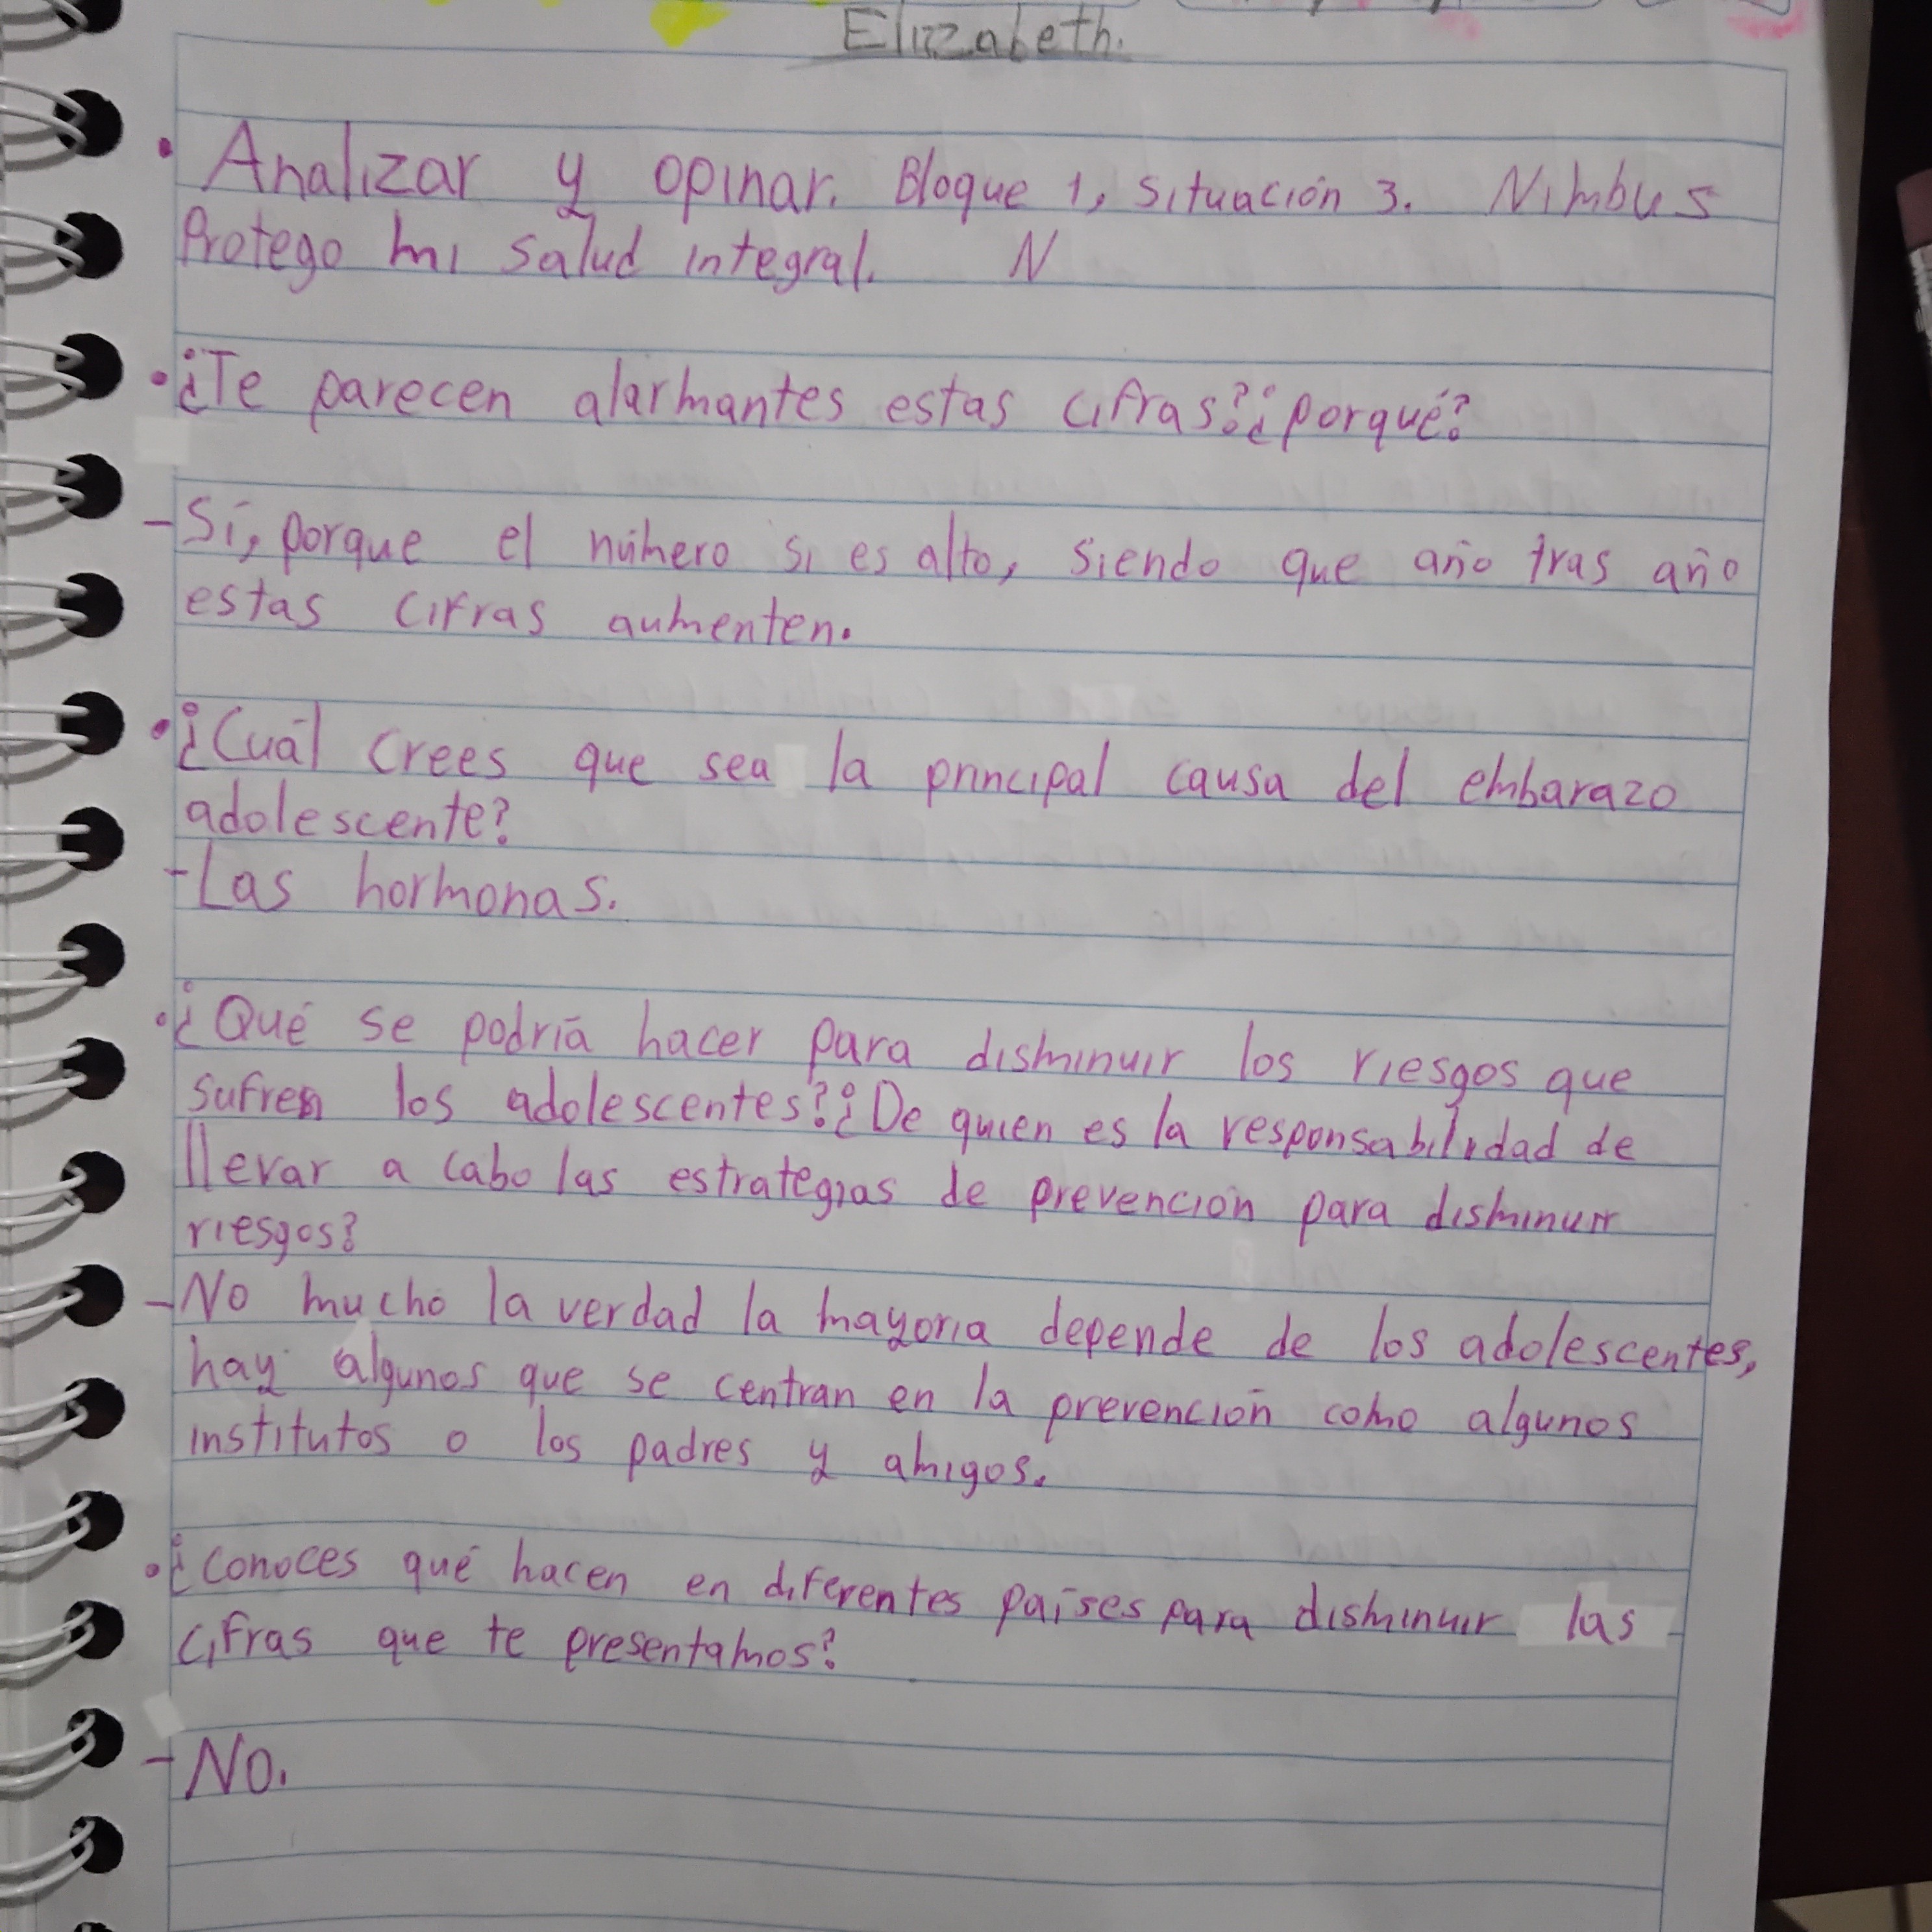 Elizzabeth.
• Analizar y opinar. Bloque 1, situación 3. Nimbus
Protego mi salud integral. N
• ¿Te parecen alarmantes estas cifras? ¿porqué?
- Sí, porque el número si es alto, siendo que año tras año
estas cifras aumenten.
• ¿Cuál crees que sea la principal causa del embarazo
adolescente?
- Las hormonas.
• ¿Qué se podría hacer para disminuir los riesgos que
sufren los adolescentes? ¿De quien es la responsabilidad de
llevar a cabo las estrategias de prevención para disminuir
riesgos?
- No mucho la verdad la mayoria depende de los adolescentes,
hay algunos que se centran en la prevención como algunos
institutos o los padres y amigos.
• ¿Conoces qué hacen en diferentes países para disminuir las
cifras que te presentamos?
- No.